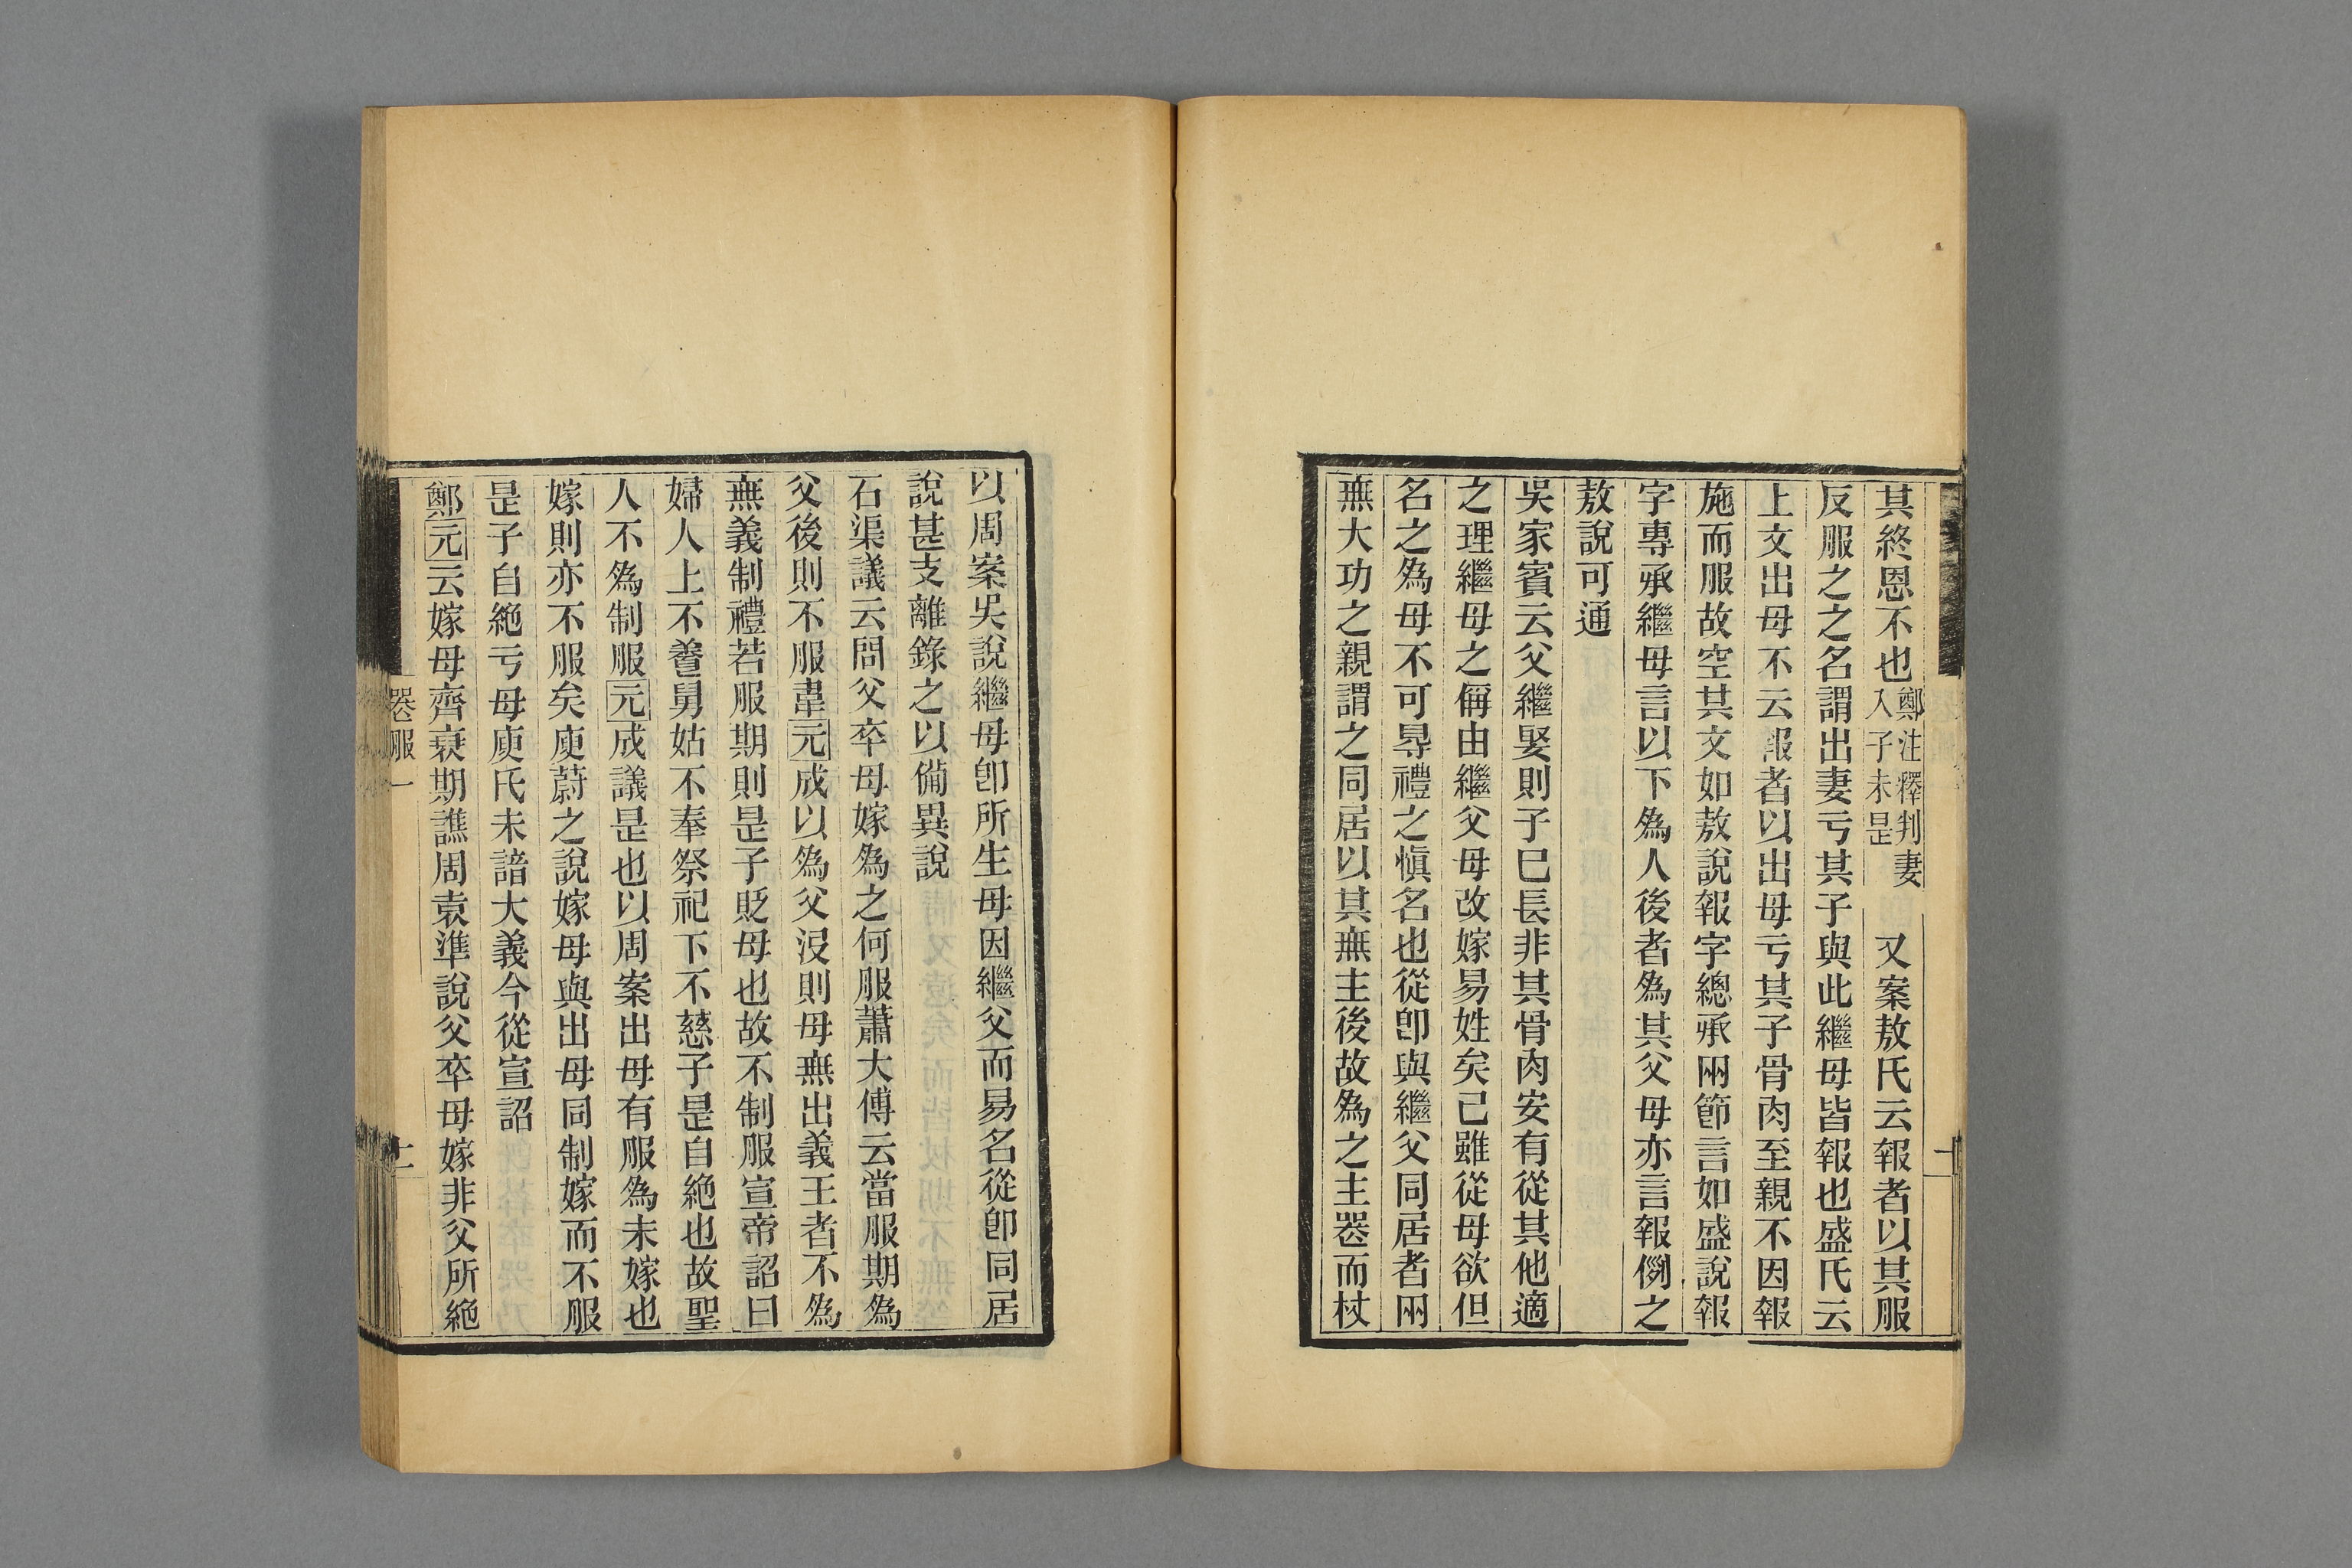 其終恩不也鄭注釋判妻人子未是又案敖氏云報者以其服
反服之之名謂出妻亏其子與此繼母皆報也盛氏云
上文出母不云報者以出母亏其子骨肉至親不因報
施而服故空其文如敖說報字總承兩節言如盛說報
字專承繼母言以下為人後者為其父母亦言報例之
敖說可通
吳家賓云父繼娶則子已長非其骨肉安有從其他適
之理繼母之偁由繼父母改嫁易姓矣己雖從母欲但
名之為母不可㝵禮之慎名也從卽與繼父同居者兩
無大功之親謂之同居以其無主後故為之主喪而杖
以周案吳說繼母卽所生母因繼父而易名從卽同居
說甚支離錄之以備異說
石渠議云問父卒母嫁為之何服蕭大傅云當服期為
父後則不服韋元成以為父沒則母無出義王者不為
無義制禮若服期則是子貶母也故不制服宣帝詔曰
婦人上不養舅姑不奉祭祀下不慈子是自絕也故聖
人不為制服元成議是也以周案出母有服為未嫁也
嫁則亦不服矣庾蔚之說嫁母與出母同制嫁而不服
是子自絕亏母庾氏未諳大義今從宣詔
鄭元云嫁母齊衰期譙周袁準說父卒母嫁非父所絕
喪服一
十二